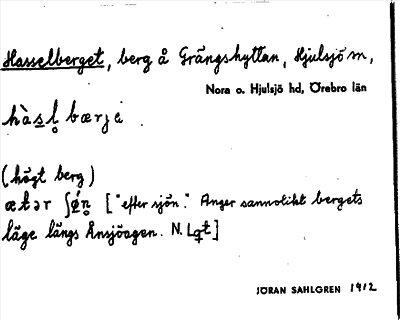 Hasselberget, berg å Grängshyttan, Hjulsjö sn,
Nora o. Hjulsjö hd, Örebro län
hàsl̥bærjè
(högt berg)
ætər ʃǿn̥ ["efter sjön". Anger sannolikt bergets
läge längs Ånsjöagen. N. Lgt]
JÖRAN SAHLGREN 1912